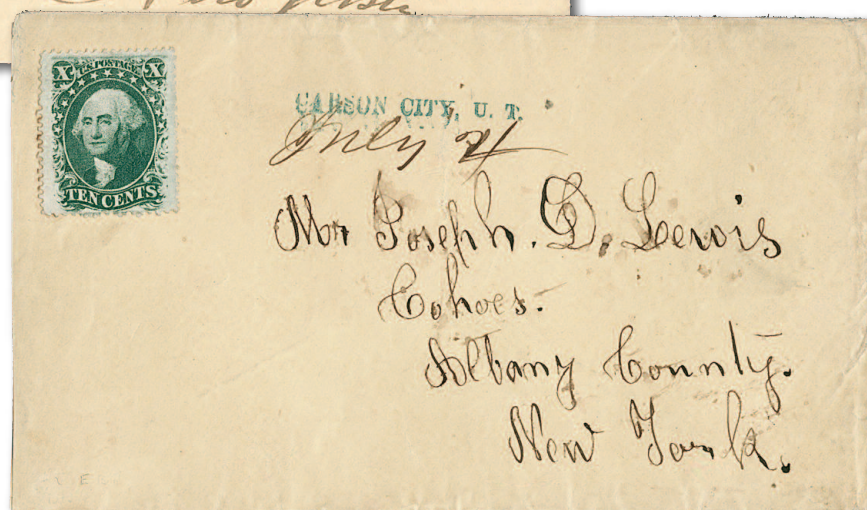 X U.S. POSTAGE X
TEN CENTS
CARSON CITY, U. T.
July
Mr Joseph. D. Lewis
Cohoes.
Albany County.
New York.